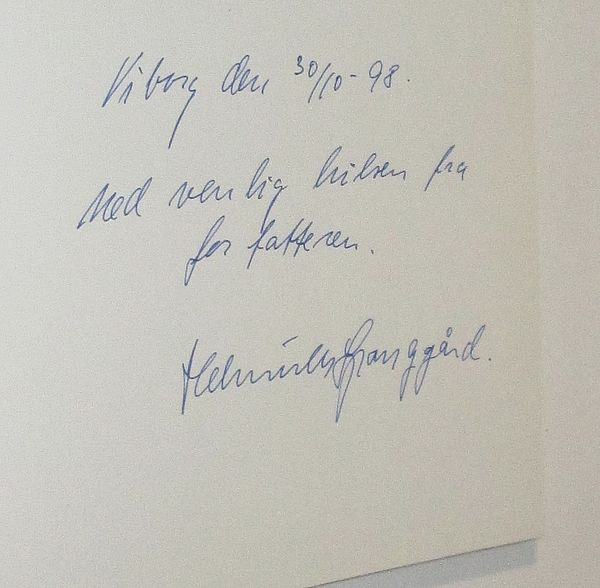 Viborg den 30/10-98.
Med venlig hilsen fra
forfatteren.